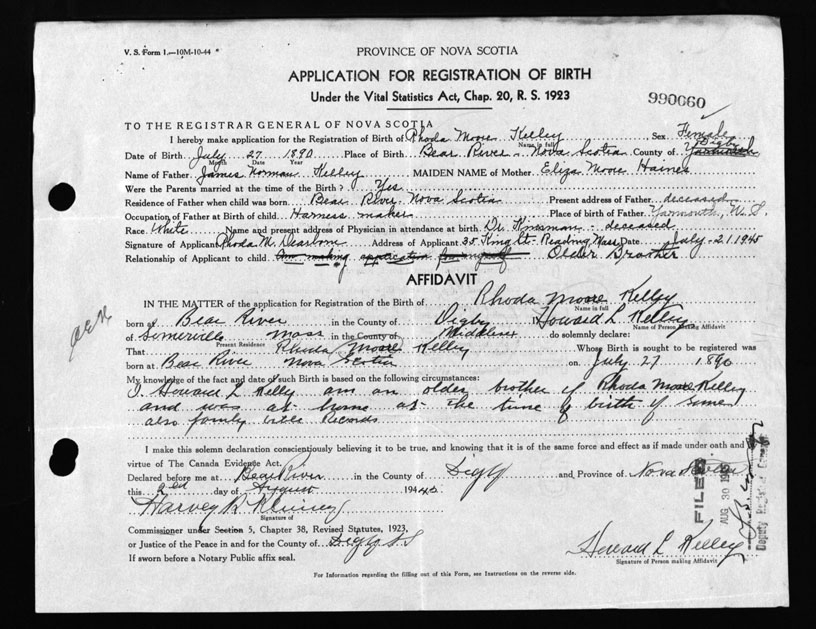 V. S. Form 1.—10M-10-44
PROVINCE OF NOVA SCOTIA
APPLICATION FOR REGISTRATION OF BIRTH
Under the Vital Statistics Act, Chap. 20, R. S. 1923
990660
TO THE REGISTRAR GENERAL OF NOVA SCOTIA
I hereby make application for the Registration of Birth of Rhoda Moore Kelley Sex Female
Name in full
Digby
Date of Birth July 27 1890 Place of Birth Bear River - Nova Scotia County of Yarmouth
Month Date Year
Name of Father James Norman Kelley MAIDEN NAME of Mother Eliza Moore Haines
Were the Parents married at the time of the Birth? Yes
Residence of Father when child was born Bear River Nova Scotia Present address of Father deceased
Occupation of Father at Birth of child Harness maker Place of birth of Father Yarmouth, N.S.
Race White Name and present address of Physician in attendance at birth Dr. Kinsman - deceased
Signature of Applicant Rhoda M. Dearborn Address of Applicant 35 King St. Reading, Mass Date July - 21 1945
Relationship of Applicant to child Am making application for myself Older Brother
AFFIDAVIT
IN THE MATTER of the application for Registration of the Birth of Rhoda Moore Kelley
Name in full
born at Bear River in the County of Digby Howard L. Kelley
Name of Person Making Affidavit
of Somerville Mass in the County of Middlesex do solemnly declare:
Present Residence
That Rhoda Moore Kelley Whose Birth is sought to be registered was
born at Bear River Nova Scotia on July 27 1890
My knowledge of the fact and date of such Birth is based on the following circumstances:
I, Howard L Kelley am an older brother of Rhoda Moore Kelley
and was at home at the time of birth of same
also family bible Records
I make this solemn declaration conscientiously believing it to be true, and knowing that it is of the same force and effect as if made under oath and by
virtue of The Canada Evidence Act.
Declared before me at Bear River in the County of Digby and Province of Nova Scotia
this 2nd day of August 194
Harvey
Signature of
Commissioner under Section 5, Chapter 38, Revised Statutes, 1923,
or Justice of the Peace in and for the County of Digby N S
If sworn before a Notary Public affix seal.
Howard L Kelley
Signature of Person making Affidavit
For Information regarding the filling out of this Form, see Instructions on the reverse side.
FILED
AUG 30 1945
Deputy Registrar General